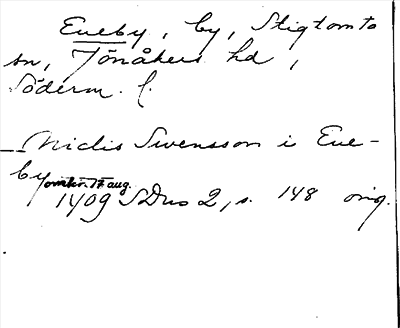 Eneby, by, Stigtomta
sn, Jönåkers hd,
Söderm. l.
Niclis Swensson i Ene-
by omkr. 17 aug.
1409 SDns 2, s. 148 orig.